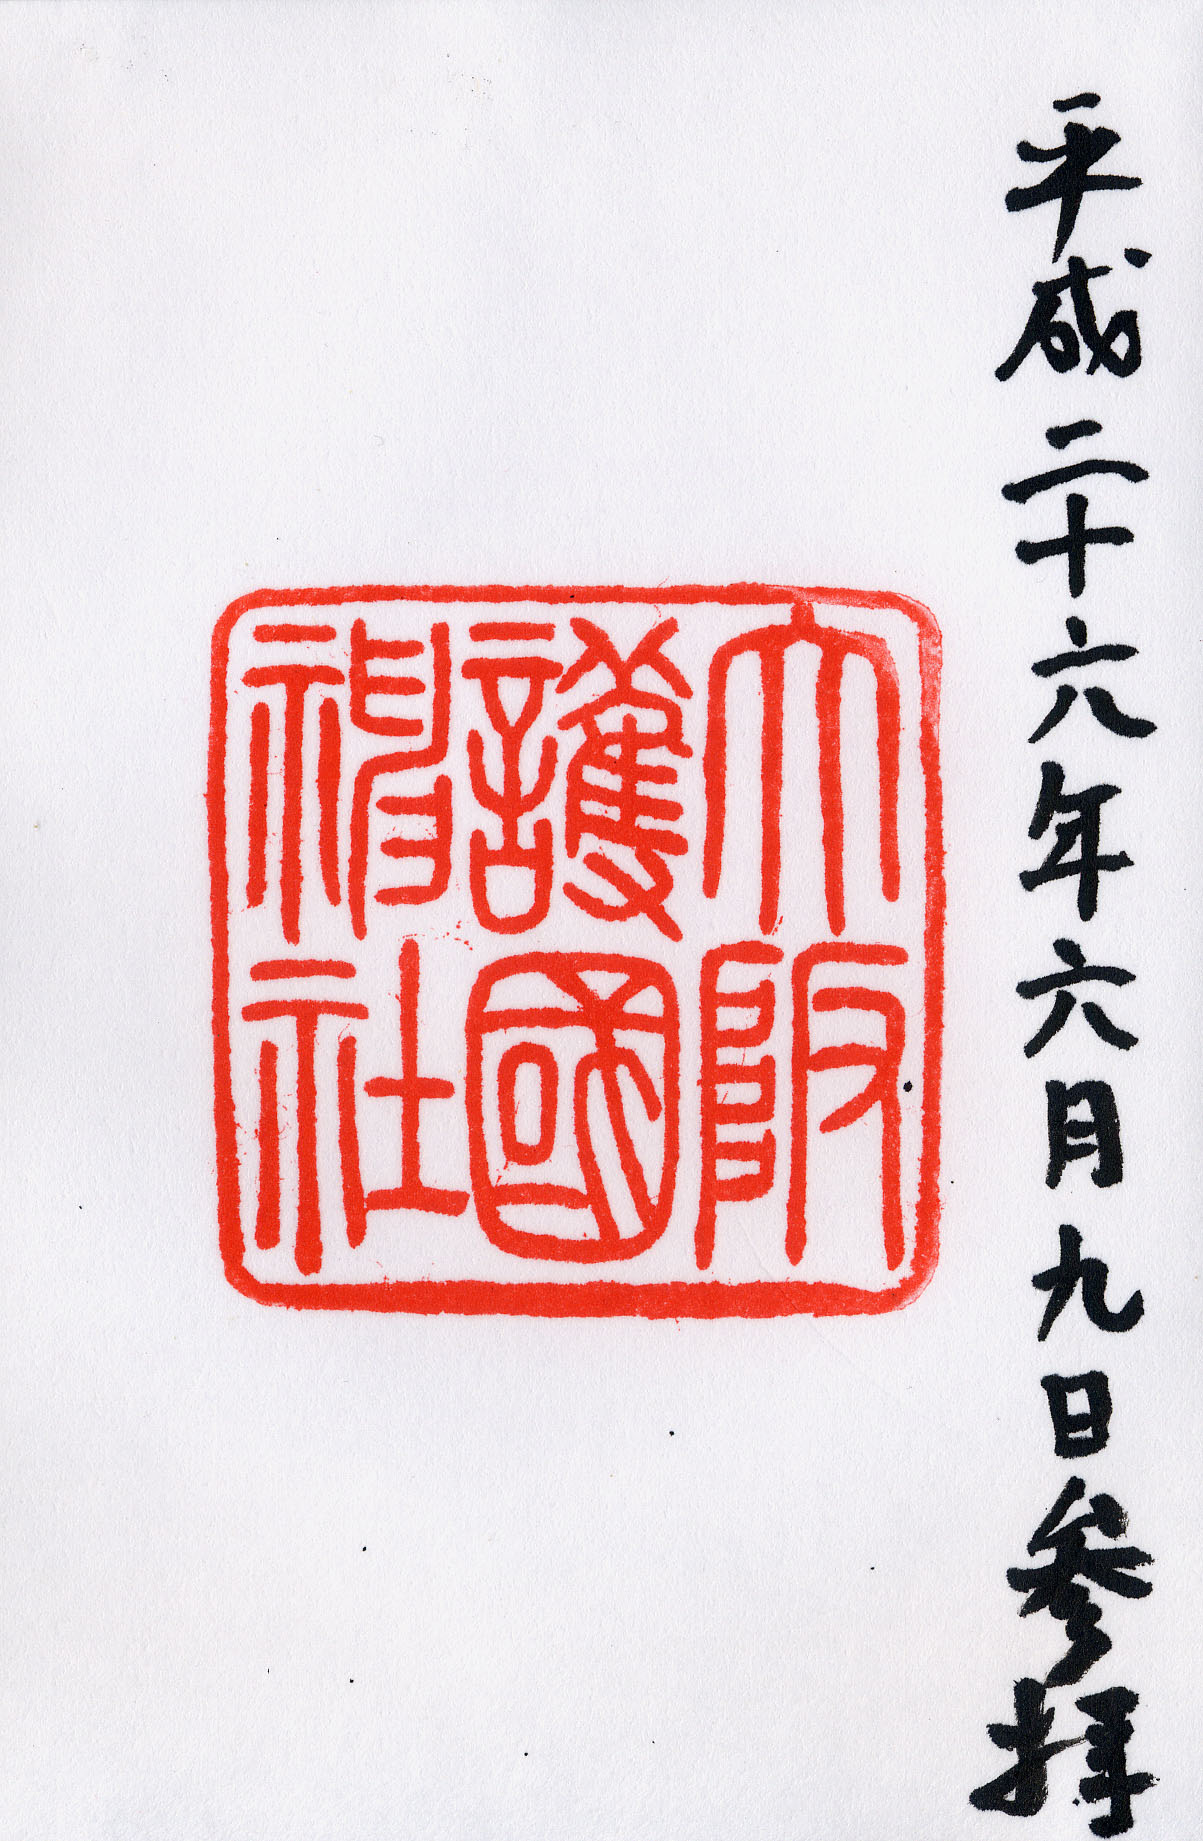 平成二十六年六月九日参拝
大阪
護國
神社